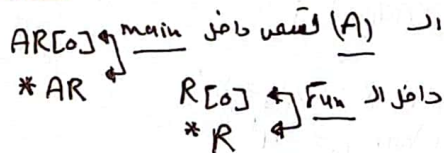 الـ (A) تُقصَد داخل main AR[0]
* AR
داخل الـ Fun R[0]
* R